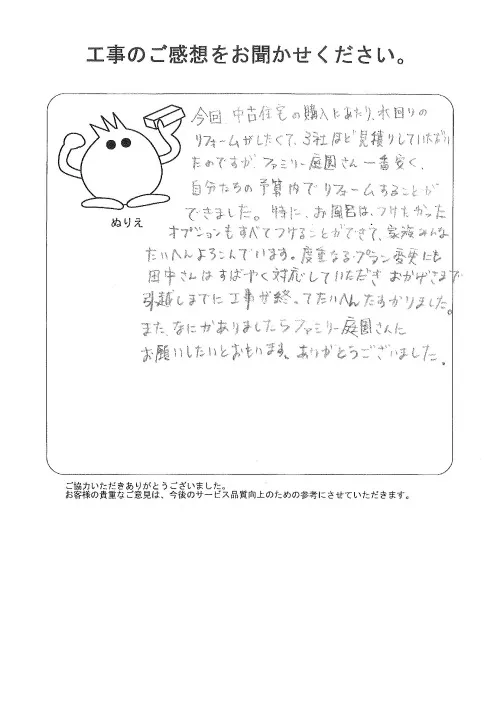 工事のご感想をお聞かせください。
今回 中古住宅の購入とあたり、水回りの
リフォームがしたくて、3社ほど見積りしていただい
たのですが、ファミリー庭園さん一番安く、
自分たちの予算内でリフォームすることが
できました。特に、お風呂は、つけたかった
オプションもすべてつけることができて、家族みんな
たいへんよろこんでいます。度重なるプラン変更にも
田中さんはすばやく対応していただき おかげさまで
引越しまでに工事が終ってたいへんたすかりました。
また、なにかありましたらファミリー庭園さんに
お願いしたいとおもいます。ありがとうございました。
ぬりえ
ご協力いただきありがとうございました。
お客様の貴重なご意見は、今後のサービス品質向上のための参考にさせていただきます。